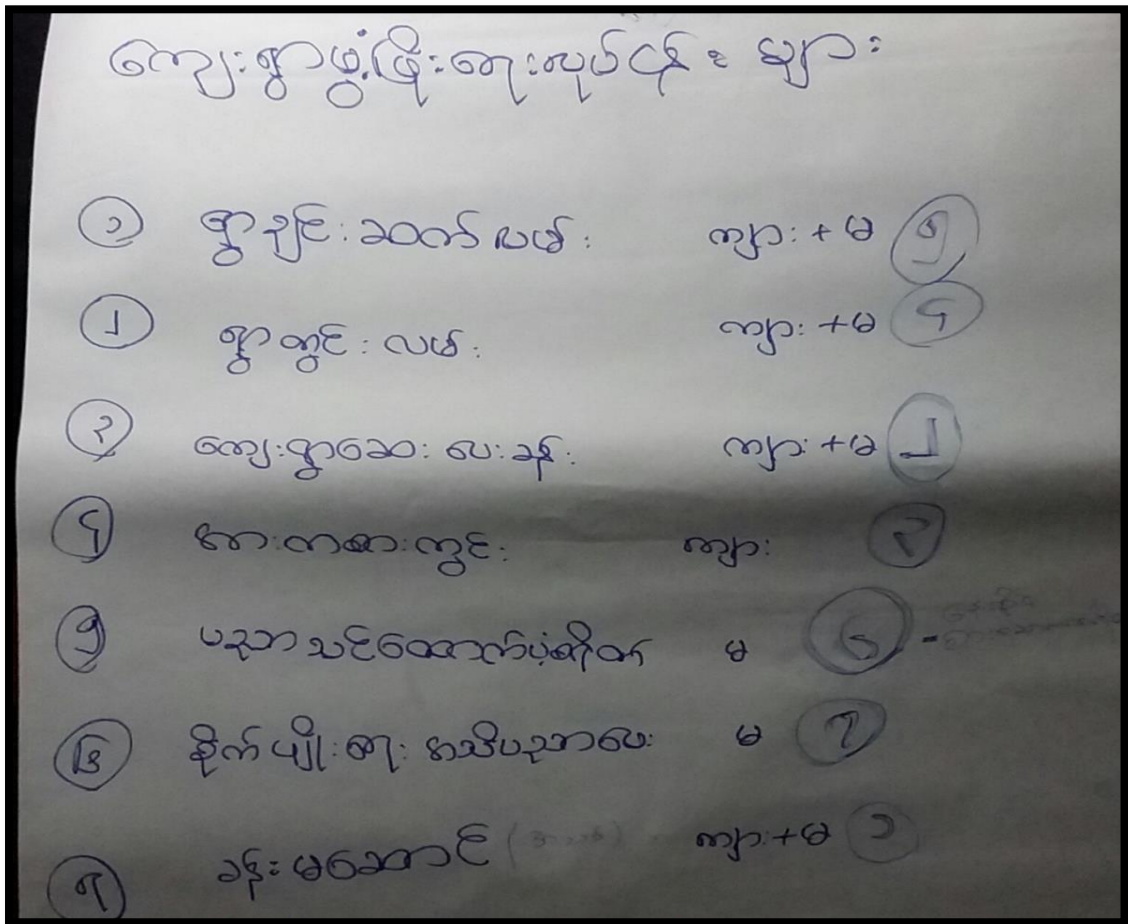 ကျေးရွာဖွံ့ဖြိုးရေးလုပ်ငန်းများ
၁ ရွာချင်းဆက်လမ်း ကျား + မ ၅
၂ ရွာတွင်းလမ်း ကျား + မ ၄
၃ ကျေးရွာဆေးပေးခန်း ကျား + မ ၂
၄ အားကစားကွင်း ကျား ၃
၅ ပညာသင်ထောက်ပံ့စရိတ် မ ၆ -
၆ စိုက်ပျိုးရေး အသိပညာပေး မ ၇
၇ ခန်းမဆောင် ကျား + မ ၁